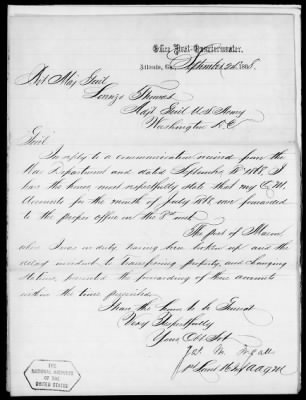 Office Post Quartermaster,
Atlanta, Ga., September 2d 1868.
Bvt Maj Genl
Lorenzo Thomas
Adjt Genl U.S. Army
Washington D.C.
Genl
In reply to a communication received from the
War Department and dated September 1868, I
have the honor, most respectfully state that my Q.M.
Accounts for the month of July 1868 were forwarded
to the proper office on the inst.
The post of Macon
where I was on duty having been broken up and the
delay incident to transferring property, and changing
stations, prevented the forwarding of these accounts
within the time prescribed
I have the honor to be General
Very Respectfully
Your Obt Svt
Jas. M.
1st Lieut 16 Inf A.A.Q.M.
THE
NATIONAL ARCHIVES
OF THE
UNITED STATES